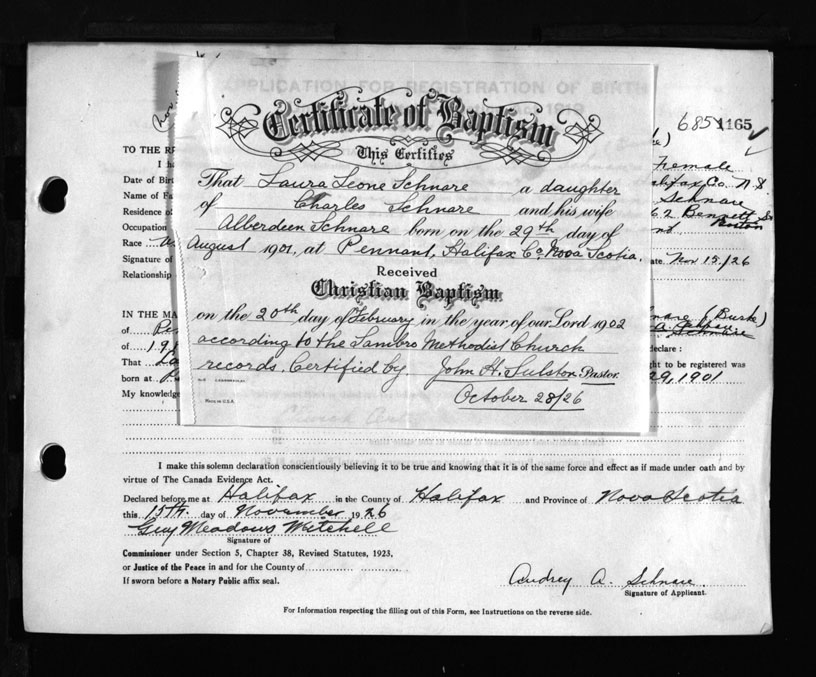 APPLICATION FOR REGISTRATION OF BIRTH
685 1165
Certificate of Baptism
This Certifies
That Laura Leone Schnare a daughter
of Charles Schnare and his wife
Alberdeen Schnare born on the 29th day of
August 1901, at Pennant, Halifax Co. Nova Scotia.
Received
Christian Baptism
on the 20th day of February in the year of our Lord 1902
according to the Sambro Methodist Church
records. Certified by John H. Tulston. Pastor.
October 28/26
MADE IN U.S.A.
TO THE RE
I ha
Date of Birt
Name of Fa
Residence of
Occupation
Race
Signature of
Relationship
Female
Halifax Co. N.S.
Schnare
62 Bennett St
Boston
ate Nov 15/26
IN THE MA
of
of
That
born at
My knowledge
(Burke)
Schnare
declare :
ht to be registered was
29, 1901
I make this solemn declaration conscientiously believing it to be true and knowing that it is of the same force and effect as if made under oath and by
virtue of The Canada Evidence Act.
Declared before me at Halifax in the County of Halifax and Province of Nova Scotia
this 15th day of November 1926
Guy Meadows Mitchell
Signature of
Commissioner under Section 5, Chapter 38, Revised Statutes, 1923,
or Justice of the Peace in and for the County of
If sworn before a Notary Public affix seal.
Audrey A. Schnare
Signature of Applicant.
For Information respecting the filling out of this Form, see Instructions on the reverse side.